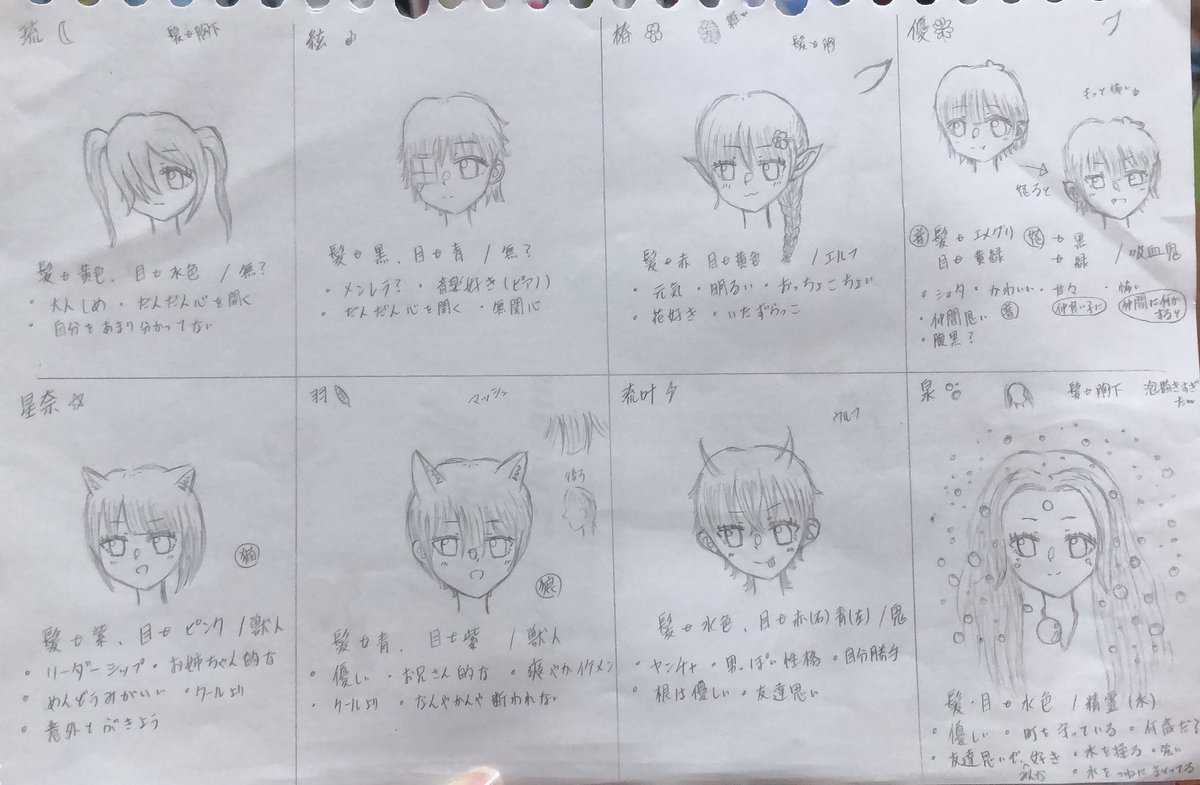 琉
髪→胸下
髪→黄色、目→水色 / 無?
・大人しめ ・だんだん心を開く
・自分をあまり分かってない
絃♪
髪→黒、目→青 / 無?
・メンヘラ? ・音楽好き(ピアノ)
・だんだん心を開く ・無関心
椿
髪→胸
髪→赤 目→黄色 / エルフ
・元気 ・明るい ・おっちょこちょい
・花好き ・いたずらっこ
優
もっと怖い
怒ると
普 髪→エメグリ 怒 →黒
目→黄緑 →緑 / 吸血鬼
・ショタ ・かわいい ・甘々 ・怖い
・仲間思い 普 仲良い子に 仲間に何かすると
・腹黒?
星奈☆
猫
髪→紫、目→ピンク / 獣人
・リーダーシップ ・お姉ちゃん的な
・めんどうみがいい ・クールより
・意外とぶきよう
羽
マッシュ
後ろ
狼
髪→青、目→紫 / 獣人
・優しい ・お兄さん的な ・爽やかイケメン
・クールより ・なんやかんや断われない
流叶
ウルフ
髪→水色、目→赤(右)青(左) / 鬼
・ヤンチャ ・男っぽい性格 ・自分勝手
・根は優しい ・友達思い
泉
髪→胸下
泡描きすぎたw
髪・目→水色 / 精霊(水)
・優しい ・町を守っている ・何歳だ?
・友達思いで、みんな好き ・水を操る ・強い
・水をつねにまとってる